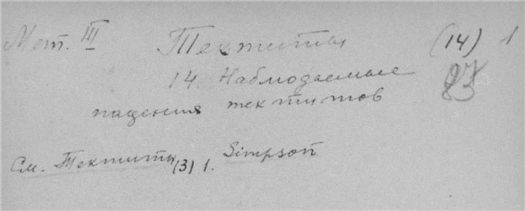 Мет. III Тектиты (14) 1
14. Наблюдаемые 83
падения тектитов
См. Тектиты (3) 1. Simpson